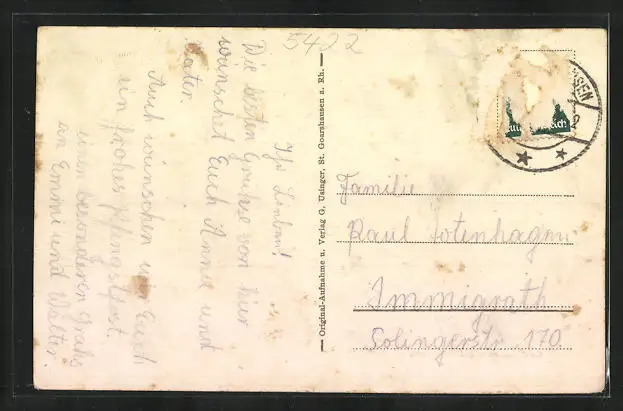 5422
Ihr Lieben!
Die besten Grüsse von hier
wünschet Euch Änne und
Vater.
Auch wünschen wir Euch
ein frohes Pfingstfest.
einen besonderen Gruss
an Emmi und Walter.
— Original-Aufnahme u. Verlag G. Usinger, St. Goarshausen a. Rh. —
Familie
Paul Totenhagen
Immigrath
Solingerstr 170.